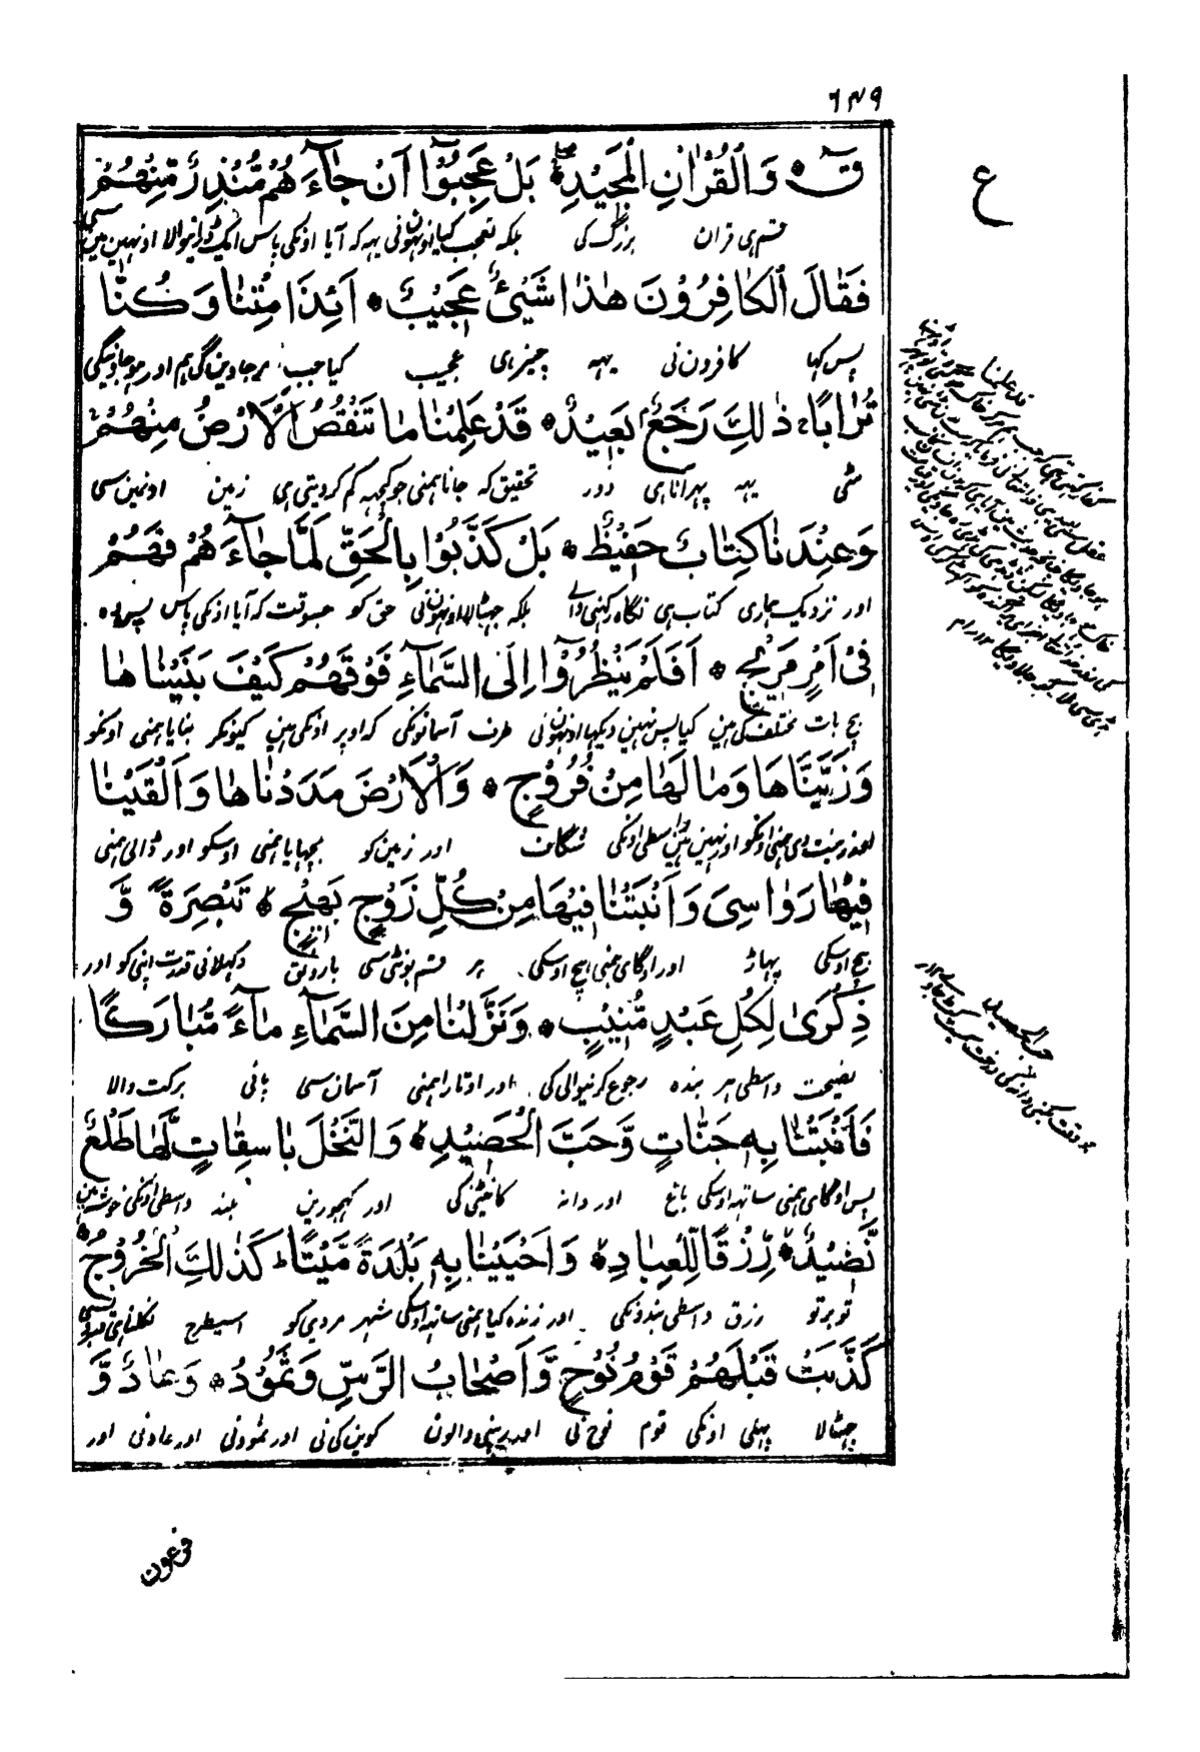 ٦٤٩
ع
قٓ ۚ وَالْقُرْاٰنِ الْمَجِيْدِ ۚ بَلْ عَجِبُوْٓا اَنْ جٰآءَهُمْ مُنْذِرٌ مِّنْهُمْ
قسم ہی قران بزرگ کی بلکہ تعجب کیا اونہون نی یہہ کہ آیا اونکی پاس ایک ڈرانیوالا اونہین مین سی
فَقٰالَ الْكٰافِرُوْنَ هٰذٰا شَيْئٌ عَجِيْبٌ ۚ اَئِذٰا مِتْنٰا وَكُنّٰا
پس کہا کافرون نی یہہ چیز ہی عجیب کیا جب مرجاوین گی ہم اور ہو جاوینگی
تُرٰابًا ۚ ذٰلِكَ رَجْعٌ بَعِيْدٌ ۚ قَدْ عَلِمْنٰا مٰا تَنْقُصُ الْاَرْضُ مِنْهُمْ
مٹی یہہ پہرانا ہی دور تحقیق کہ جانا ہمنی جو کچہہ کم کر دیتی ہی زمین اونمین سی
وَعِنْدَنٰا كِتٰابٌ حَفِيْظٌ ۚ بَلْ كَذَّبُوْا بِالْحَقِّ لَمّٰا جٰآءَهُمْ فَهُمْ
اور نزدیک ہماری کتاب ہی نگاہ رکہنی والی بلکہ جہٹلایا اونہون نی حق کو جسوقت کہ آیا اونکی پاس پس وہ
فِيْ اَمْرٍ مَرِيْجٍ ۚ اَفَلَمْ يَنْظُرُوْٓا اِلَى السَّمٰآءِ فَوْقَهُمْ كَيْفَ بَنَيْنٰاهٰا
بیچ بات مختلف کی ہین کیا پس نہین دیکہا اونہون نی طرف آسمانونکی کہ اوپر اونکی ہین کیونکر بنایا ہمنی اونکو
وَزَيَّنّٰاهٰا وَمٰا لَهٰا مِنْ فُرُوْجٍ ۚ وَالْاَرْضَ مَدَدْنٰاهٰا وَاَلْقَيْنٰا
اور زینت دی ہمنی اونکو اور نہین ہین واسطی اونکی شگاف اور زمین کو بچہایا ہمنی اوسکو اور ڈالی ہمنی
فِيْهٰا رَوٰاسِيَ وَاَنْبَتْنٰا فِيْهٰا مِنْ كُلِّ زَوْجٍ بَهِيْجٍ ۚ تَبْصِرَةً وَّ
بیچ اوسکی پہاڑ اور اوگای ہمنی بیچ اوسکی ہر قسم بوٹی سی بارونق دکہلانی قدرت اپنی کو اور
ذِكْرٰى لِكُلِّ عَبْدٍ مُّنِيْبٍ ۚ وَنَزَّلْنٰا مِنَ السَّمٰآءِ مٰآءً مُّبٰارَكًا
نصیحت واسطی ہر بندہ رجوع کرنیوالی کی اور اوتارا ہمنی آسمان سی پانی برکت والا
فَاَنْبَتْنٰا بِهٖ جَنّٰاتٍ وَّحَبَّ الْحَصِيْدِ ۚ وَالنَّخْلَ بٰاسِقٰاتٍ لَّهٰا طَلْعٌ
پس اوگای ہمنی ساتہہ اوسکی باغ اور دانہ کاٹنی کی اور کہجورین بلند واسطی اونکی خوشہ ہین
نَّضِيْدٌ ۚ رِّزْقًا لِّلْعِبٰادِ ۚ وَاَحْيَيْنٰا بِهٖ بَلْدَةً مَّيْتًا ۚ كَذٰلِكَ الْخُرُوْجُ
توبرتو رزق واسطی بندونکی اور زندہ کیا ہمنی ساتہہ اوسکی شہر مردی کو اسیطرح نکلنا ہی قبرون سی
كَذَّبَتْ قَبْلَهُمْ قَوْمُ نُوْحٍ وَّاَصْحٰابُ الرَّسِّ وَثَمُوْدُ ۚ وَعٰادٌ وَّ
جہٹلایا پہلی اونکی قوم نوح نی اور رہنی والون کوین کی نی اور ثمود نی اور عاد نی اور
قد علمنا
حب الحصید
فرعون